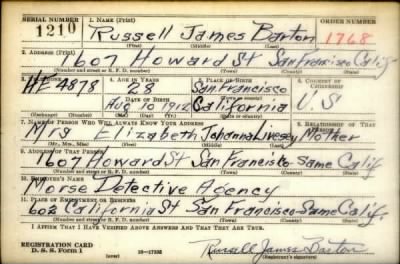 SERIAL NUMBER 1. NAME (Print) ORDER NUMBER
1210 Russell James Barton 1768
(First) (Middle) (Last)
2. ADDRESS (Print)
1607 Howard St San Francisco Calif
(Number and street or R. F. D. number) (Town) (County) (State)
3. TELEPHONE 4. AGE IN YEARS 5. PLACE OF BIRTH 6. COUNTRY OF CITIZENSHIP
HE 4878 28 San Francisco
DATE OF BIRTH
Aug 10 1912 California U.S
7. NAME OF PERSON WHO WILL ALWAYS KNOW YOUR ADDRESS 8. RELATIONSHIP OF THAT PERSON
Mrs Elizabeth Johanna Livesey Mother
(Mr., Mrs., Miss) (First) (Middle) (Last)
9. ADDRESS OF THAT PERSON
1607 Howard St San Francisco Same Calif.
(Number and street or R. F. D. number) (Town) (County) (State)
10. EMPLOYER'S NAME
Morse Detective Agency
11. PLACE OF EMPLOYMENT OR BUSINESS
602 California St San Francisco Same Calif.
(Number and street or R. F. D. number) (Town) (County) (State)
I AFFIRM THAT I HAVE VERIFIED ABOVE ANSWERS AND THAT THEY ARE TRUE.
REGISTRATION CARD
D. S. S. Form 1 (over) Russell James Barton
(Registrant's signature)